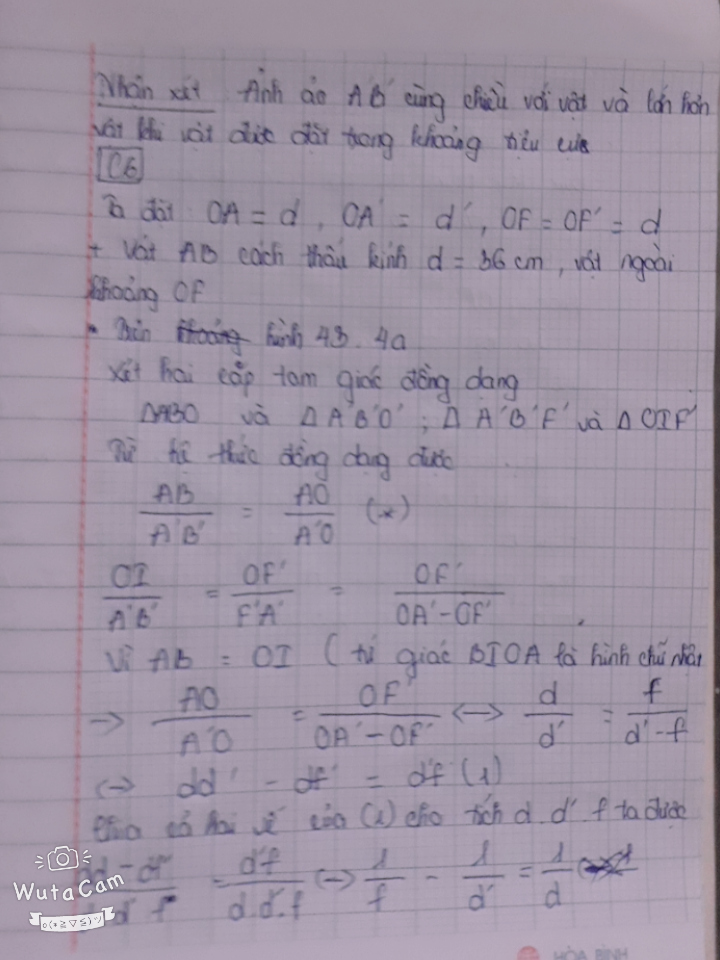 Nhận xét Ảnh ảo A'B' cùng chiều với vật và lớn hơn
vật khi vật được đặt trong khoảng tiêu cự
C6
Ta đặt OA = d, OA' = d', OF = OF' = d
+ Vật AB cách thấu kính d = 36 cm, vật ngoài
khoảng OF
- Trên hình 43.4a
Xét hai cặp tam giác đồng dạng
ΔABO và ΔA'B'O'; ΔA'B'F' và ΔOIF'
Từ hệ thức đồng dạng được
AB/A'B' = AO/A'O (*)
OI/A'B' = OF'/F'A' = OF'/OA'-OF'
Vì AB = OI (tứ giác BIOA là hình chữ nhật
→ AO/A'O = OF'/OA'-OF' ↔ d/d' = f/d'-f
↔ dd' - df' = d'f (1)
Chia cả hai vế của (1) cho tích d.d'.f ta được
= d'f/d.d'.f ↔ 1/f - 1/d' = 1/d
WutaCam
HÒA BÌNH